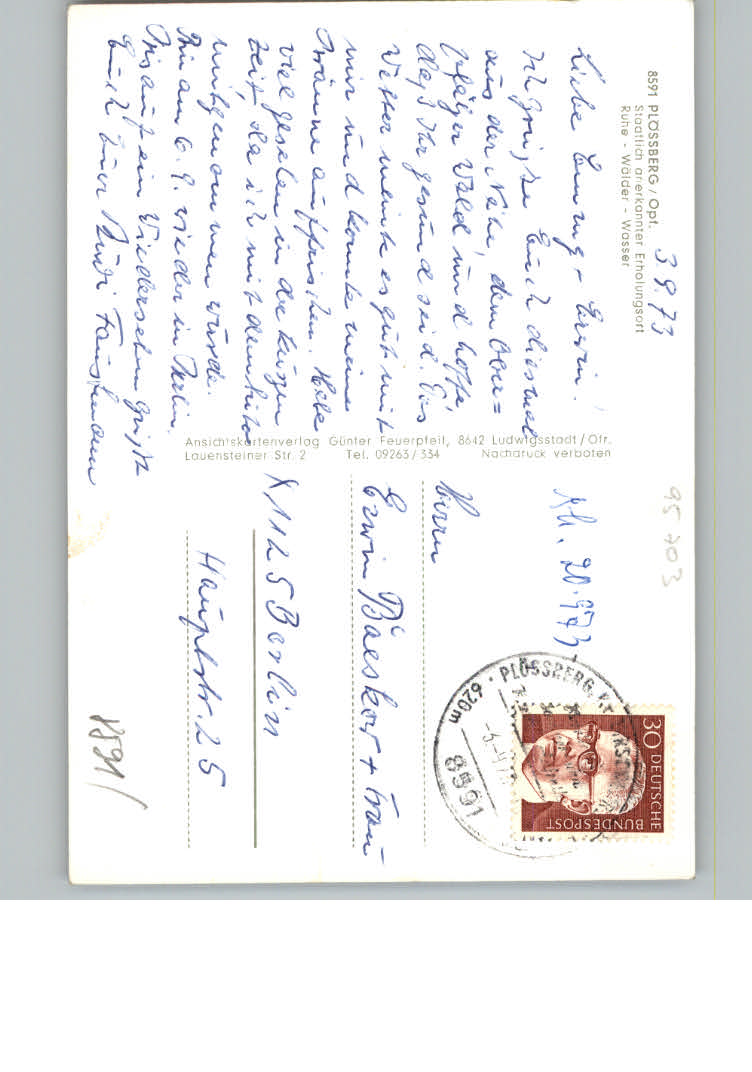 8591 PLÖSSBERG / Opf.
Staatlich anerkannter Erholungsort
Ruhe - Wälder - Wasser
3.9.73
Liebe Emmy + Erwin!
Ich grüße Euch diesmal
aus der Nähe dem Ober=
pfälzer Wald und hoffe,
daß Ihr gesund seid. Das
Wetter meinte es gut mit
mir und konnte meine
Bräune auffrischen. Habe
viel gesehen in der kurzen
Zeit, da ich mit dem Auto
mitgenommen wurde.
Bin am 6.9. wieder in Berlin.
Bis auf ein Wiedersehn grüßt
Euch Eure
Ansichtskartenverlag Günter Feuerpfeil, 8642 Ludwigsstadt / Ofr.
Lauensteiner Str. 2 Tel. 09263 / 334 Nachdruck verboten
95703
20.9.73
Herrn
Erwin Baeskow + Frau
X 1125 Berlin
Hauptstr. 25
8591/
PLÖSSBERG
620m
8591
30 DEUTSCHE
BUNDESPOST